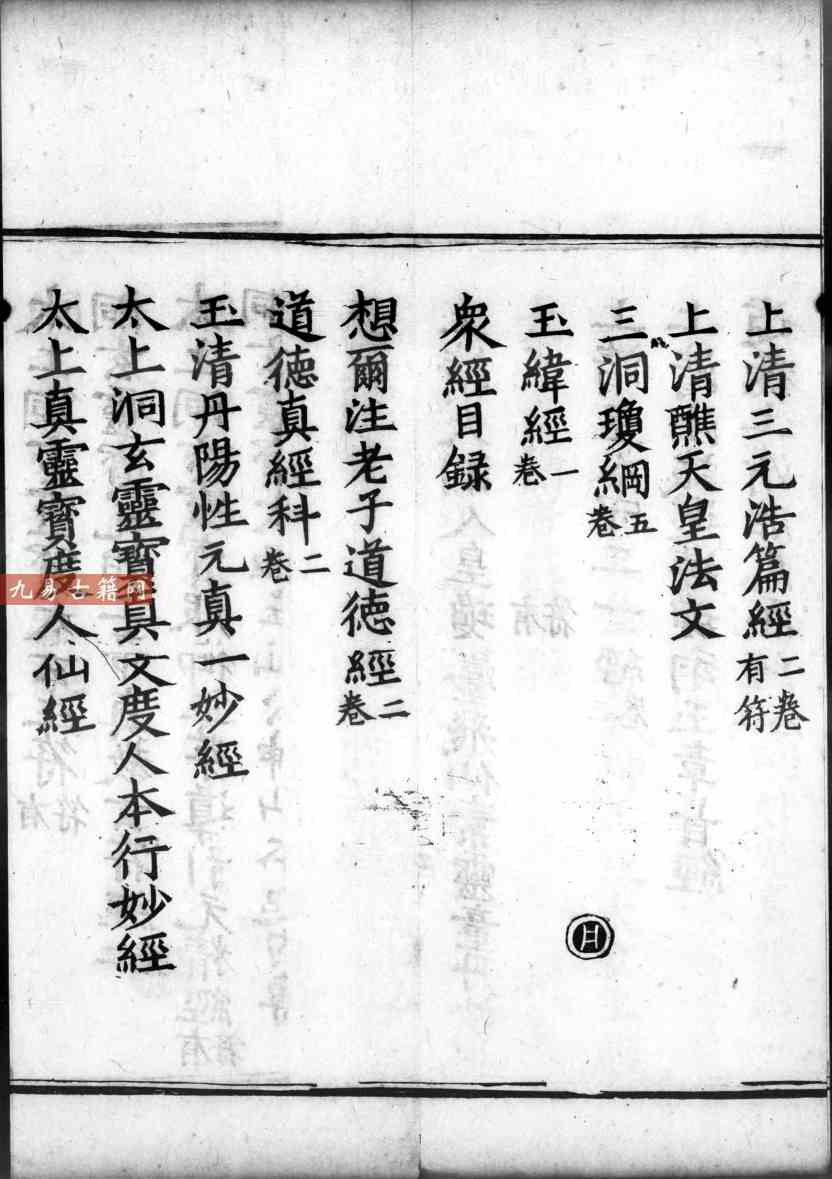 上清三元浩篇經二卷有符
上清醮天皇法文
三洞瓊綱五卷
玉緯經一卷
衆經目録
想爾注老子道德經二卷
道德真經科二卷
玉清丹陽性元真一妙經
太上洞玄靈寳具文度人本行妙經
太上真靈寳度人仙經
九易古籍网